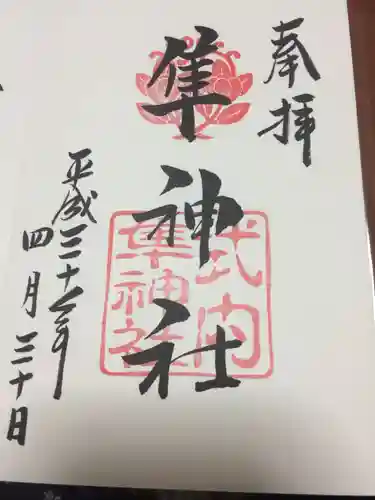 奉拝
隼神社
式内
隼神社
平成三十一年
四月三十日